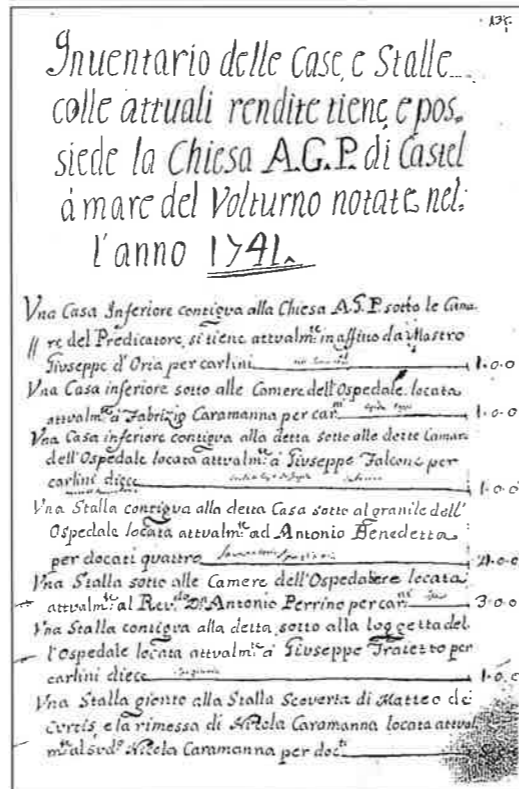 135.
Inventario delle Case, e Stalle
colle attuali rendite tiene, e pos.
siede la Chiesa A.G.P. di Castel
à mare del Volturno notate nel:
l'anno 1741.
Vna Casa Inferiore contigva alla Chiesa A.G.P. sotto le Cama.
re del Predicatore, si tiene attvalm.te in affitto da Mastro
Givseppe d'Oria per carlini 1.0.0
Vna Casa inferiore sotto alle Camere dell'Ospedale locata
attvalm.te à Fabrizio Caramanna per car.ni 1.0.0
Vna Casa inferiore contigva alla detta sotto alle dette Camare
dell'Ospedale locata attvalm.te à Givseppe Falcone per
carlini diece 1.0.0
Vna Stalla contigva alla detta Casa sotto al granile dell'
Ospedale locata attvalm.te ad Antonio Benedetta
per docati quattro 4.0.0
Vna Stalla sotto alle Camere dell'Ospedale locata
attvalm.te al Rev.do D.n Antonio Perrino per car.ni 3.0.0
Vna Stalla contigva alla detta sotto alla loggetta del
l'Ospedale locata attvalm.te à Givseppe Traietto per
carlini diece 1.0.0
Vna Stalla gionto alla Stalla Scoverta di Matteo de
Cvrtis, e la rimessa di Nicola Caramanna locata attval
m.te al svd.o Nicola Caramanna per doc.ti